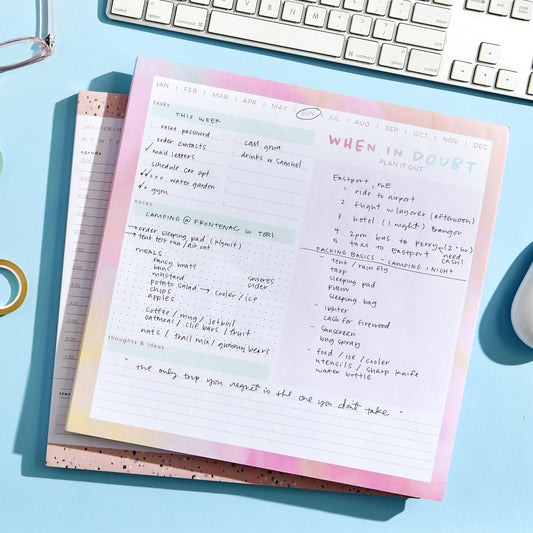 JAN | FEB | MAR | APR | MAY | JUN | JUL | AUG | SEP | OCT | NOV | DEC
tasks
THIS WEEK
reset password
order contacts
mail letters
schedule car opt
water garden
gym
call gma
drinks w Samuel
notes
CAMPING @ FRONTENAC W TERI
→ order sleeping pad (klymit)
→ tent test run / air out
MEALS:
fancy brats
buns
mustard
potato salad → cooler / ice
chips
apples
smores
order
coffee / mug / jetboil
oatmeal / clif bars / fruit
nuts / trail mix / gummy bears
WHEN IN DOUBT
PLAN IT OUT
Eastport, ME
1. ride to airport
2 flight w layover (afternoon)
3 hotel (1 night) Bangor
4 2pm bus to Perry (2.5h)
5 taxi to Eastport need cash!
PACKING BASICS - CAMPING 1 NIGHT
- tent / rain fly
tarp
sleeping pad
pillow
sleeping bag
- lighter
cash for firewood
- sunscreen
bug spray
- food / ice / cooler
utensils / sharp knife
water bottle
thoughts & ideas
" the only trip you regret is the one you don't take "
JAN | FEB | MAR
M T W T F
agenda
control
option
command
command
option